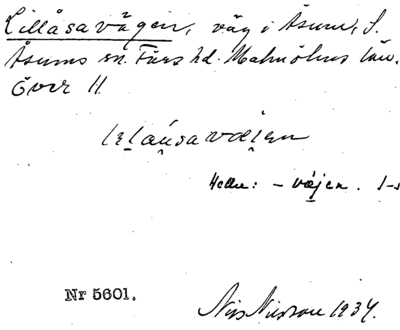 Lillåsavägen, väg i Åsum, S.
Åsums sn. Färs hd. Malmöhus län.
Över 11
Heller: - väjen.
Nr 5601.
Nils Nilsson 1934.